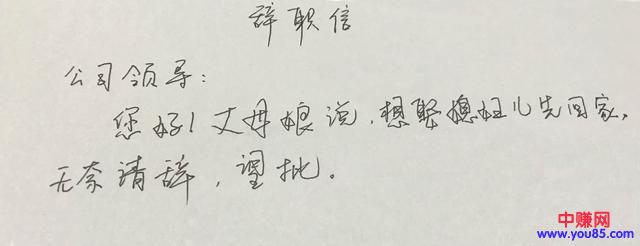 辞职信
公司领导：
您好！丈母娘说，想娶媳妇儿先回家，
无奈请辞，望批。
中赚网
www.you85.com